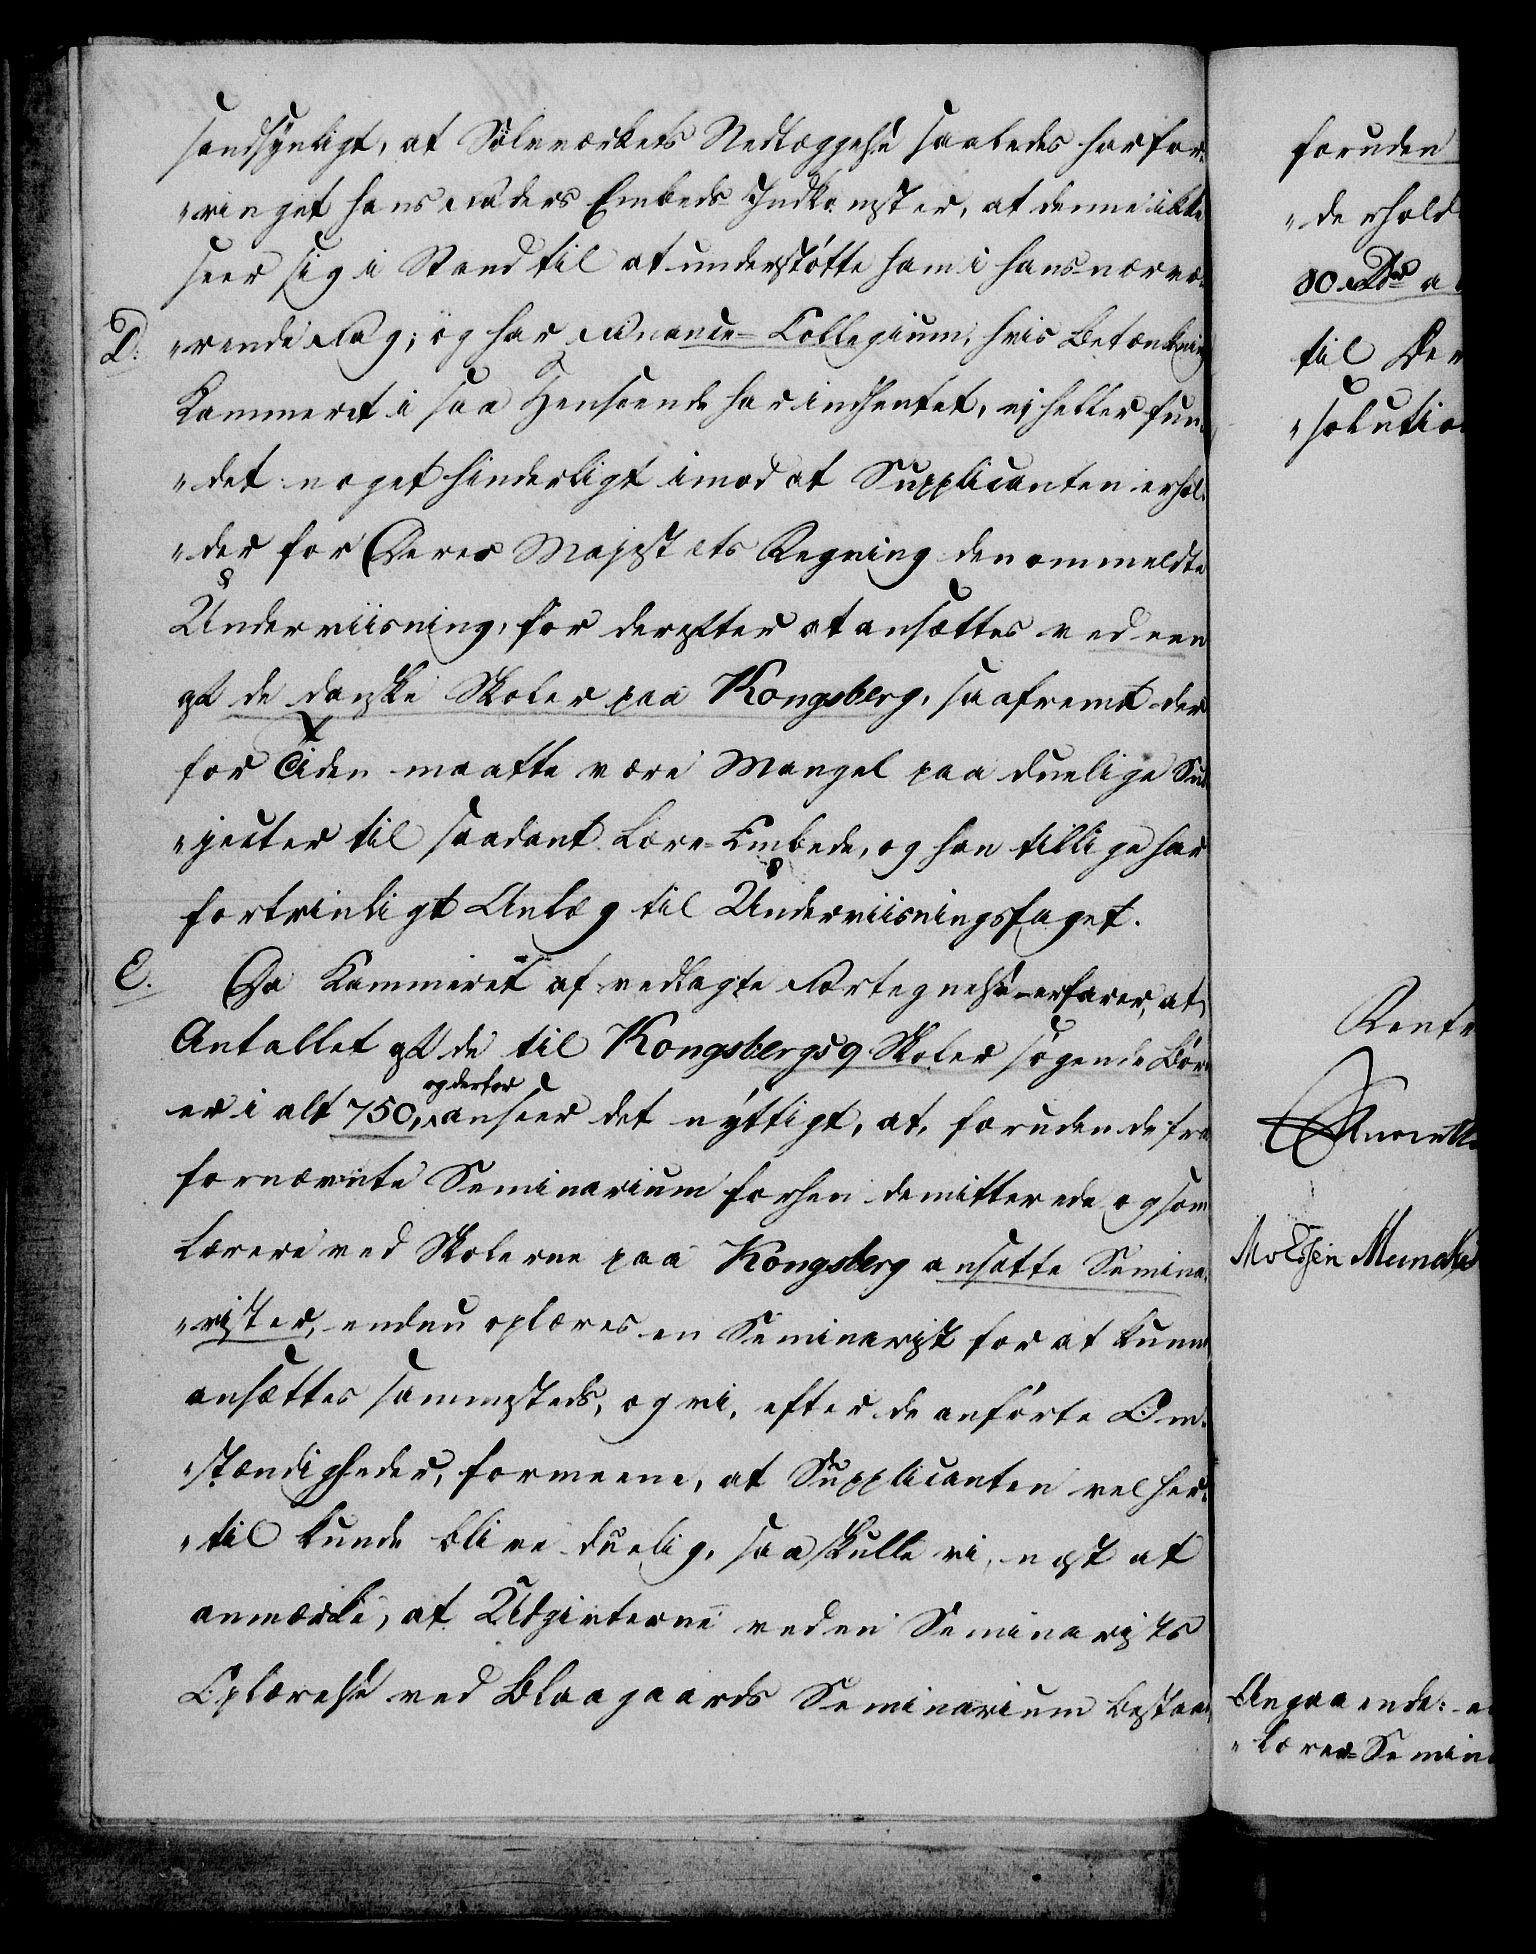 sandsynligt, at Sølvværkets Nedlæggelse saaledes har for-
"ringet hans Faders Embeds Indkomster, at denne ikke
seer sig i Stand til at understøtte ham i hans nærvæ-
D. "rende Fag; og har Finance-Collegium, hvis Betænkning
Kammeret i saa Henseende har indhentet, ej heller fun-
"det noget hinderligt imod at Supplicanten erhol-
"der for Deres Majestæts Regning den ommeldte
Underviisning, for derefter at ansættes ved een
af de danske Skoler paa Kongsberg, saafremt der
for Tiden maatte være Mangel paa duelige Sub-
"jecter til saadant Lære-Embede, og han tillige har
fortrinligt Anlæg til Underviisningsfaget.
E. Da Kammeret af vedlagte Fortegnelse erfarer, at
Antallet af de til Kongsbergs 9 Skoler søgende Børn
er i alt 750, og derfor anseer det nyttigt, at, foruden de fra
fornævnte Seminarium forhen demitterede og som
Lærere ved Skolerne paa Kongsberg ansatte Semina-
"rister, endnu oplæres en Seminarist for at kunne
ansættes sammesteds, og vi, efter de anførte Om-
"stændigheder, formeene, at Supplicanten vel her-
"til kunde blive duelig, saa skulle vi, næst at
anmærke, at Udgivterne ved en Seminarists
Oplærelse ved Blaagaards Seminarium bestaae
foruden
"derhold
80 Rdr a
til De
"solutio
Rent
Moltke
Angaaende: e
"lærer-Semin